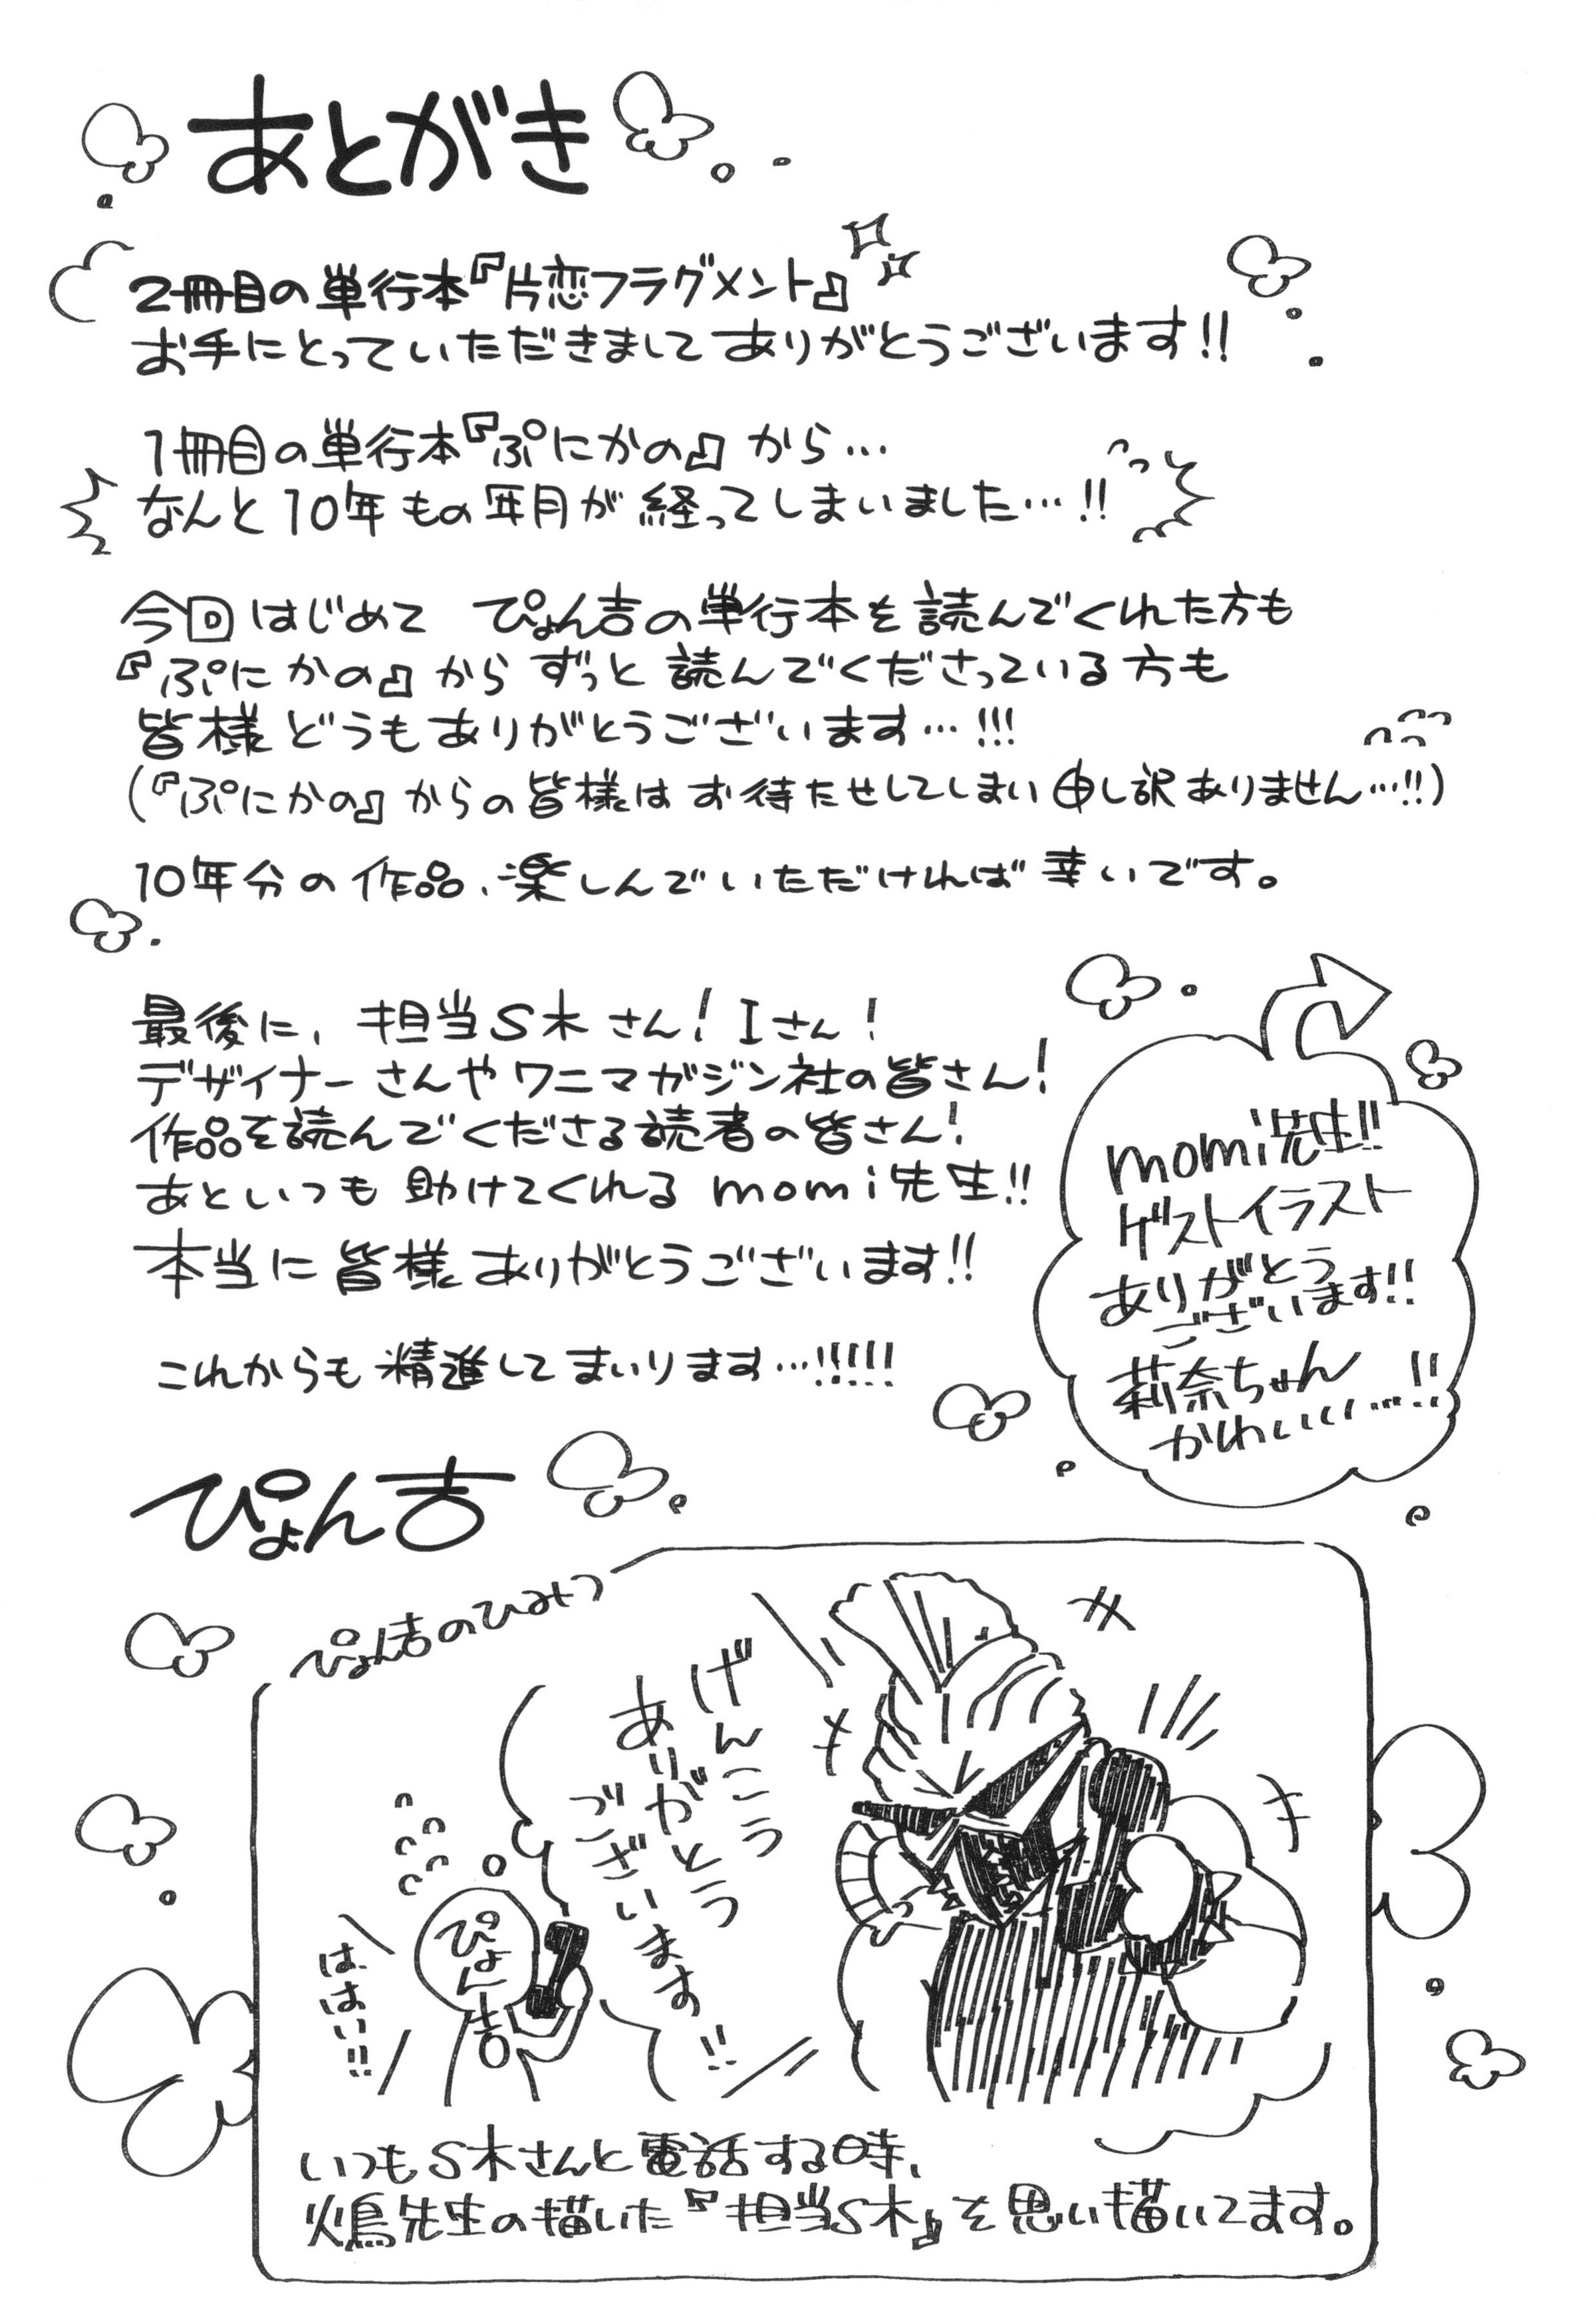 あとがき
2冊目の単行本『片恋フラグメント』
お手にとっていただきましてありがとうございます!!
1冊目の単行本『ぷにかの』から…
なんと10年もの年月が経ってしまいました…!!
今回はじめて ぴょん吉の単行本を読んでくれた方も
『ぷにかの』からずっと読んでくださっている方も
皆様どうもありがとうございます…!!!
(『ぷにかの』からの皆様はお待たせしてしまい申し訳ありません…!!)
10年分の作品、楽しんでいただければ幸いです。
最後に、担当S木さん!Iさん!
デザイナーさんやワニマガジン社の皆さん!
作品を読んでくださる読者の皆さん!
あといつも助けてくれるmomi先生!!
本当に皆様ありがとうございます!!
これからも精進してまいります…!!!!!
momi先生!!
ゲストイラスト
ありがとう
ございます!!
莉奈ちゃん
かわいい…!!
ぴょん吉
ぴょん吉のひみつ
げんこう
ありがとう
ございます!!
ぴょん吉
ははい!!
いつもS木さんと電話する時、
火鳥先生の描いた『担当S木』を思い描いてます。